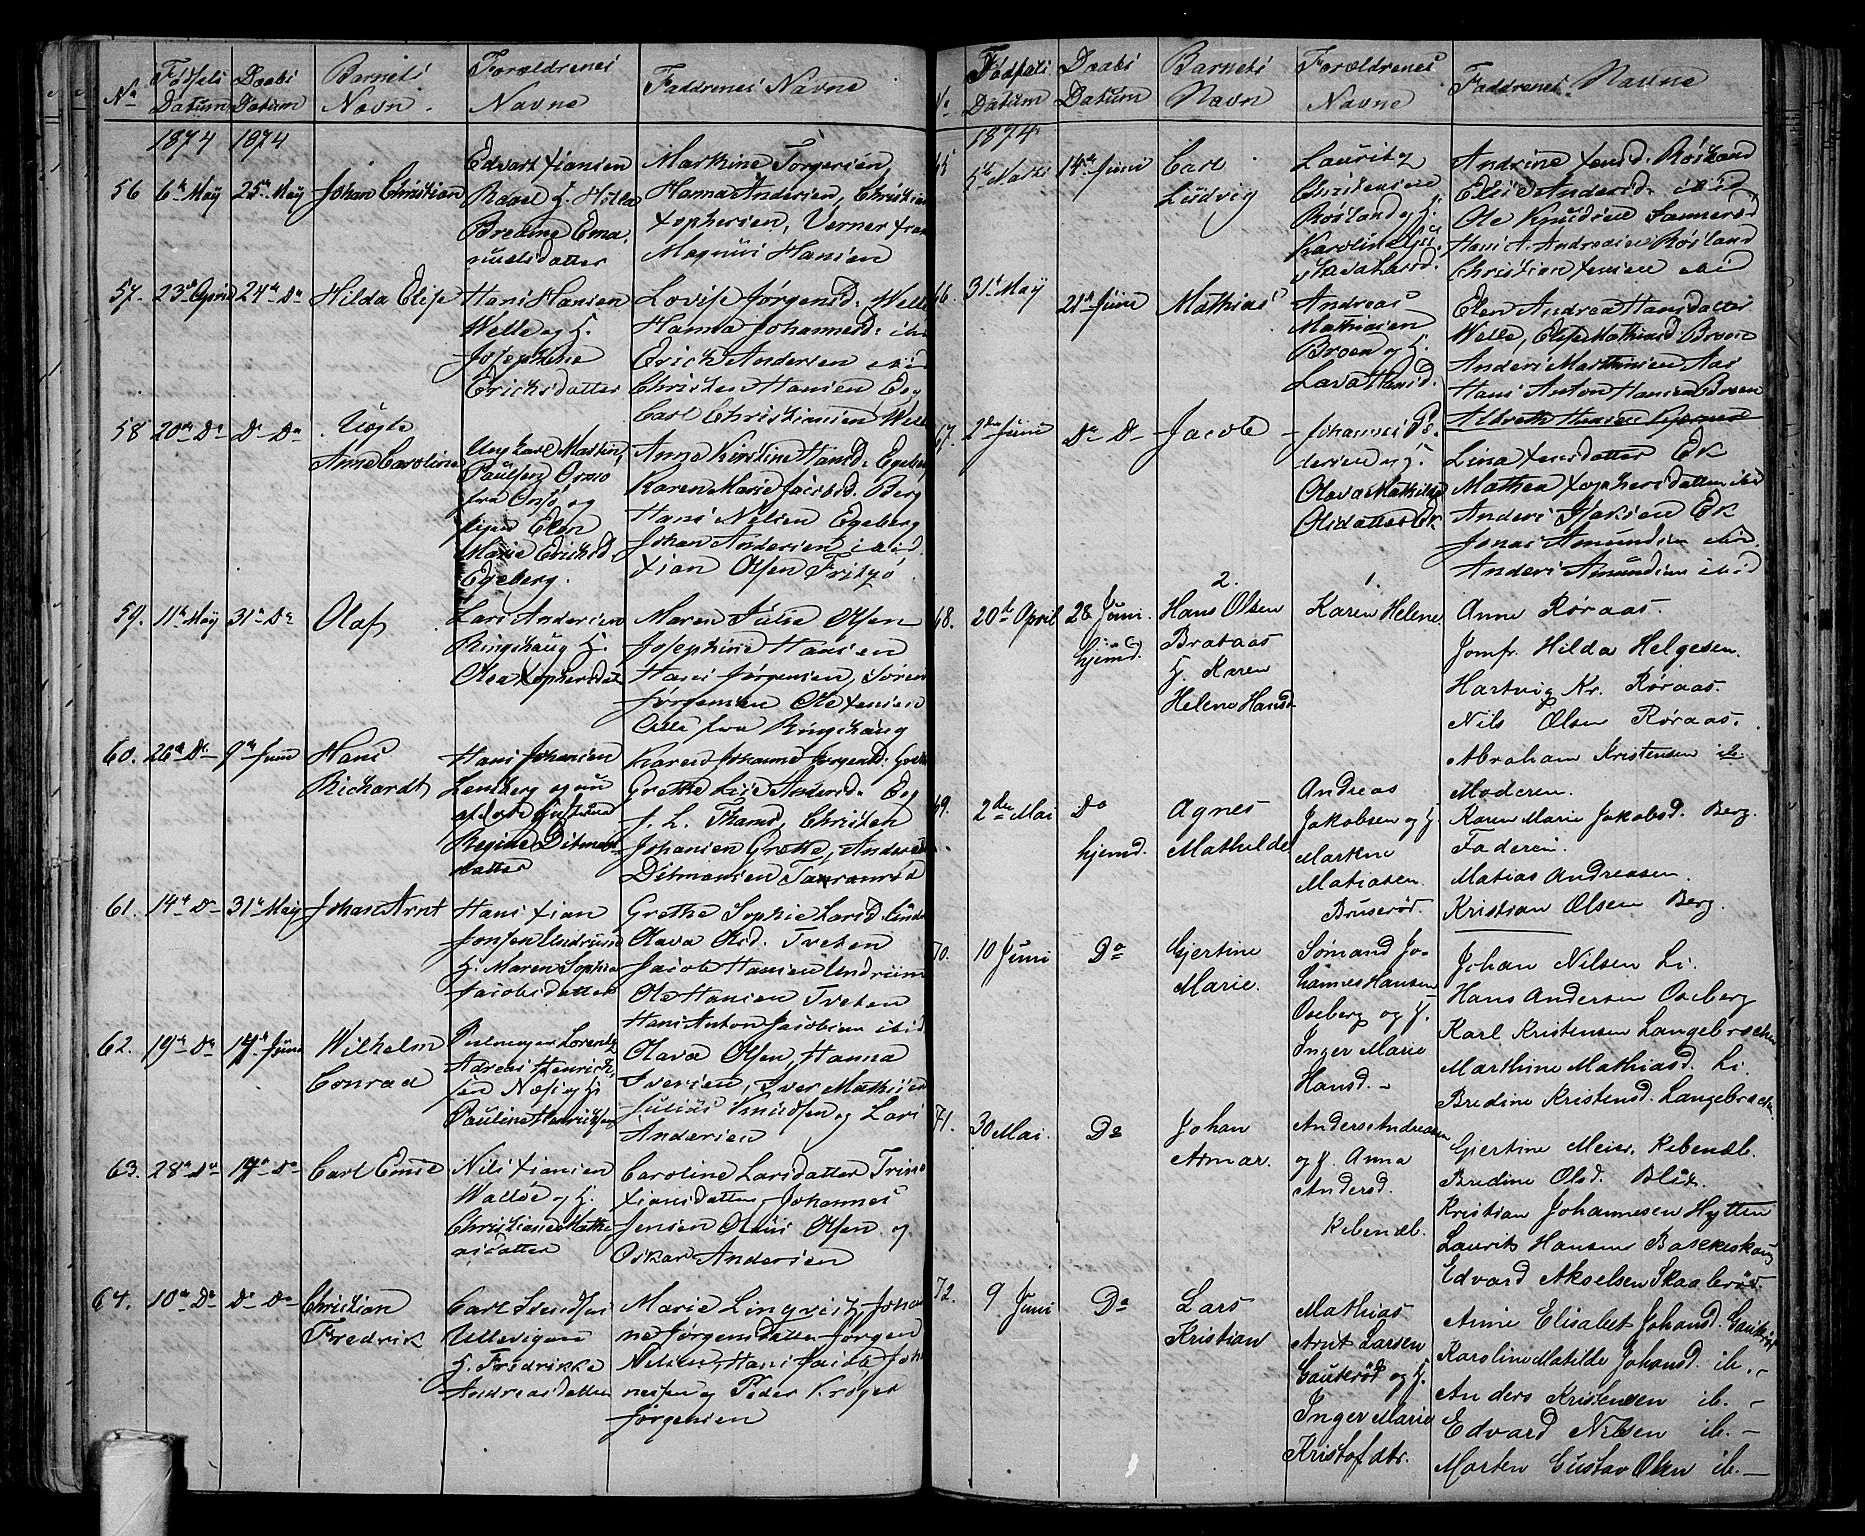 No
Födsels
Datum
Daabs
Datum
Barnets
Navn
Forældrenes
Navne
Faddrenes Navne
1874 1874
56 6te May 25de May Johan Christian
Edvart Xtiansen
Bredine Ema-
nuelsdatter
Marthine Torgersen
Hanna Andersen, Christ
tophersen, Verner
Magnus Hansen
57. 23de April 24de Do Hilda Elise
Hans Hansen
Welle og H.
Josephine
Erichsdatter
Lovise Jörgensd. Welle
Hanna Johannesd. ibid
Erich Andersen ibid
Christen Hansen Eeg
Carl Christiansen Welle
58 20de Do Do Do Uegte
Anne Caroline
Ungkarl Martin
Paulsen
fra
pigen Elen
Marie Erichsd
Egeberg.
Anne Kirstine Hansd. Egeberg
Karen Marie Jacobsd. Berg
Hans Nilsen Egeberg
Johan Andersen ibid.
Xtian Olsen Fritzö
59. 11te May 31te Do Olaf
Lars Andersen
Ringshaug H.
Olea Xtophersdat
Maren Julie Olsen
Josephine Hansen
Hans Jörgensen, Sören
Jörgensen Ole Jensen
Alle fra Ringshaug
60. 26de Do 9de Juni Hans
Richardt
Hans Johansen
Lensberg og
Regine Ditmans
datter
Karen Johanne Jörgensd.
Grethe Lise Andersd. Eeg
J. L. Tharud, Christen
Johansen Grette, Anders
Ditmansen
61. 14de Do 31te May Johan Arnt
Hans Xtian
Jonsen Undrum
H. Maren Sophie
Jacobsdatter
Grethe Sophie Larsd. Und
Olava Olsd. Tveten
Jacob Hansen Undrum
Ole Hansen Tveten
Hans Anton Jacobsen ibid
62. 19de Do 14de Juni Wilhelm
Conrad
Lorentz
Adreas Henrich
sen Næs og H.
Pauline Henrichsen
Olava Olsen, Hanna
Iversen, Iver Mathisen
Julius Knudsen og Lars
Andersen
63. 28de Do 14de Do Carl Emil
Nils Xtiansen
Wallöe og H.
Christiane Mathi
asdatter
Caroline Larsdatter Trine
Xtiansdatter, Johannes
Jensen Olaus Olsen og
Oskar Andersen
64. 10de Do Do Do Christian
Fredrik
Carl Svendsen
Ullevigen
H. Fredrikke
Andreasdatter
Marie Linqvist, Johan
ne Jörgensdatter Jörgen
Nilsen, Hans Jacob Joh
nesen og Peder Kröger
Jörgensen
No
Födsels
Datum
Daabs
Datum
Barnets
Navn
Forældrenes
Navne
Faddrenes Navne
1874
65 5te Marts 14de Juni Carl
Ludvig
Lauritz
Christensen
Rösland og H.
Karoline
Andrine Jensd. Rösland
Elise Andersd. ibid
Ole Knudsen
Hans A. Andresen Rösland
Christian Jensen ibid
66. 31te May 21de Juni Mathias
Andreas
Mathiasen
Broen og H.
Lava Hansd.
Elen Andrea Hansdatter
Welle, Elise Mathiasd. Broen
Anders Marthinsen Aas
Hans Anton Hansen Broen
67. 2den Juni Do Do Jacob
Johannes Pe-
dersen og H.
Olava Mathilde
Olsdatter Ek
Lina Jensdatter Ek
Mathea Xtophersdatter ibid
Anders Isaksen Ek
Jonas Amundsen ibid.
Anders Amundsen ibid
68. 20de April 28 Juni
hjemd.
2.
Hans Olsen
Brataas
H. Karen
Helene Hansd.
1.
Karen Helene
Anne Röraas.
Jomfr. Hilda Helgesen.
Hartvig Kr. Röraas.
Nils Olsen Röraas.
Abraham Kristensen ib.
69. 2den Mai Do
hjemd.
Agnes
Mathilde
Andreas
Jakobsen og H.
Martine
Matiasen
Bruserød.
Moderen.
Karen Marie Jakobsd. Berg.
Faderen.
Matias Andreasen.
Kristian Olsen Berg.
70. 10 Juni Do Gjertine
Marie.
Sømand Jo-
hannes Hansen
Oseberg og H.
Inger Marie
Hansd. -
Johan Nilsen Li.
Hans Andersen Oseberg
Karl Kristensen Langebrækken
Marthine Mathiasd. Li.
Bredine Kristensd. Langebrække
71. 30 Mai. Do Johan
Asmar.
Anders Andreasen
og H. Anna
Andersd.
Rebendl.
Gjertine Meier, Rebendb.
Bredine Olsd. Blix.
Kristian Johannesen Hytten
Laurits Hansen Bakkeskaug
Edvard Akselsen Skaaleröd.
72. 9 Juni Do Lars
Kristian
Mathias
Arnt Larsen
Gauteröd og H.
Inger Marie
Kristofdtr.
Anne Elisabet Johansd. Gauteröd
Karoline Matilde Johansd. ib. -
Anders Kristensen ib. -
Edvard Nilsen ib. -
Morten Gustav Olsen ib. -